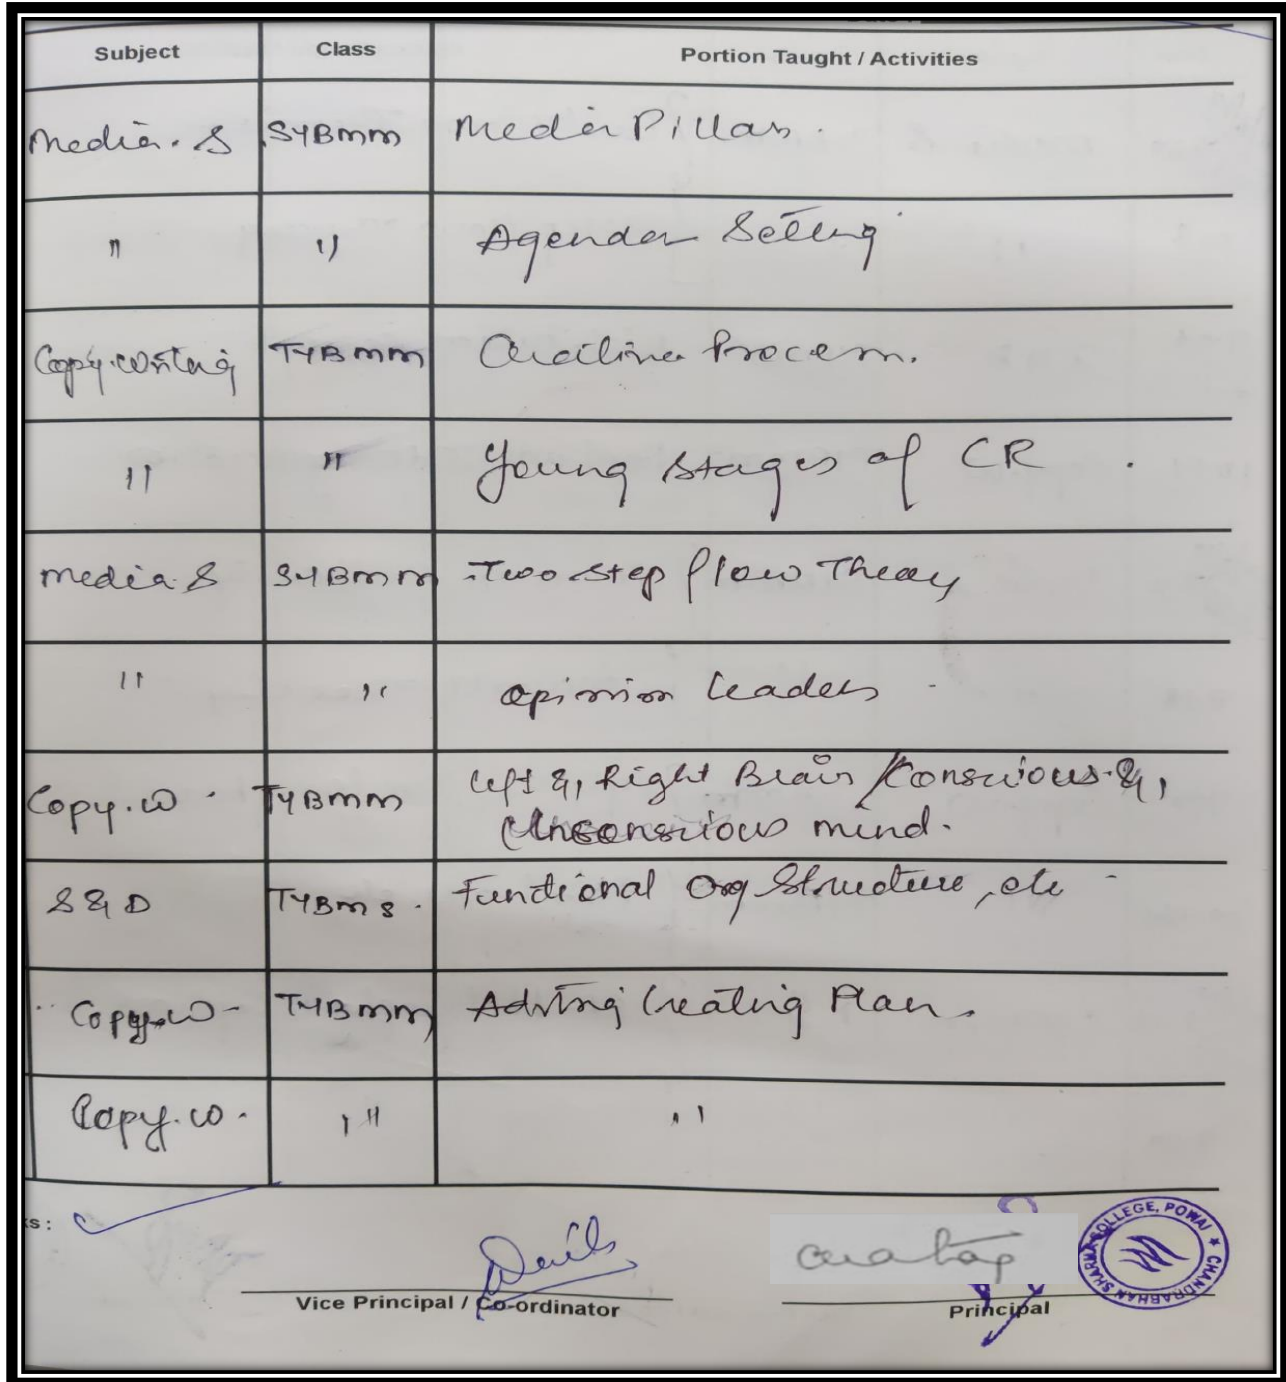 Subject Class Portion Taught / Activities
Media. S SYBMM Media Pillars.
" " Agenda Setting
Copy.writing TYBMM Creative Process.
" " Young Stages of CR.
Media.S SYBMM Two Step flow Theory
" " Opinion leaders
Copy.W. TYBMM Left &, Right Brain / Conscious &,
Unconscious mind.
S & D TYBMS. Functional Org Structure, etc
Copy.W- TYBMM Advtng Creating Plan.
Copy.W. " "
s:
Vice Principal / Co-ordinator Principal
CHANDRABHAN SHARMA COLLEGE, POWAI